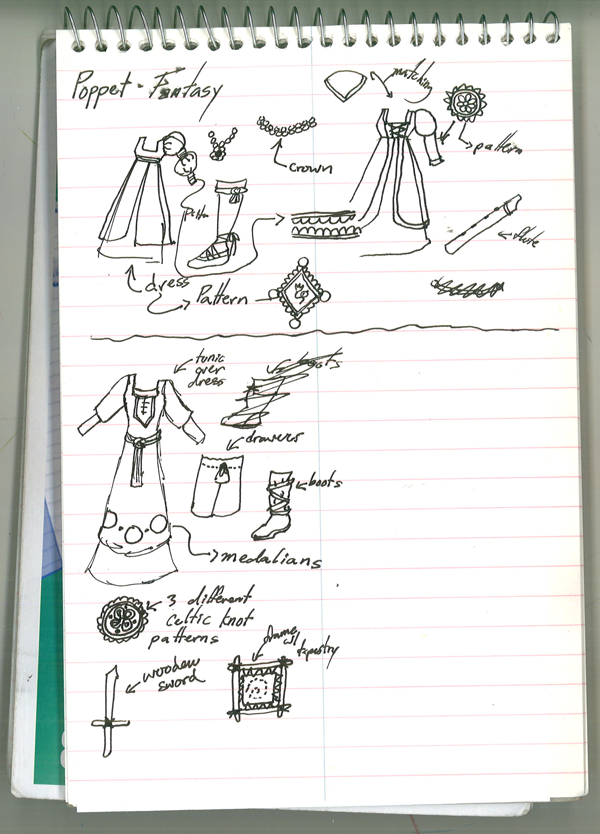 Poppet - Fantasy
matching
pattern
crown
flute
dress
Pattern
tunic
over
dress
drawers
boots
medalians
3 different
celtic knot
patterns
frame w/
tapestry
wooden
sword